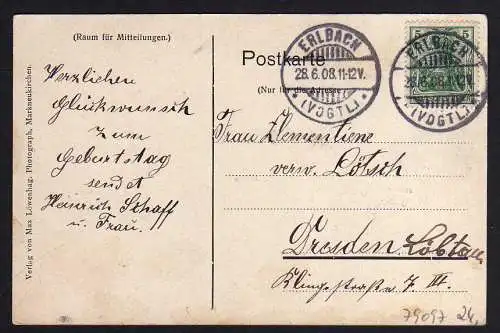 (Raum für Mitteilungen.)
Herzlichen
Glückwunsch
zum
Geburtstag
sendet
Heinrich Schaff
u. Frau.
Verlag von Max Löwenhag, Photograph, Markneukirchen.
Postkarte
(Nur für die Adresse
ERLBACH
28.6.08.11-12V.
* (VOGTL.) *
5 5
ERLBACH
28.6.08.11-12V.
* (VOGTL.)
Frau Clementiene
verw. Lötsch
Dresden Löbtau
Klingestraße 7 III.
79097 24,